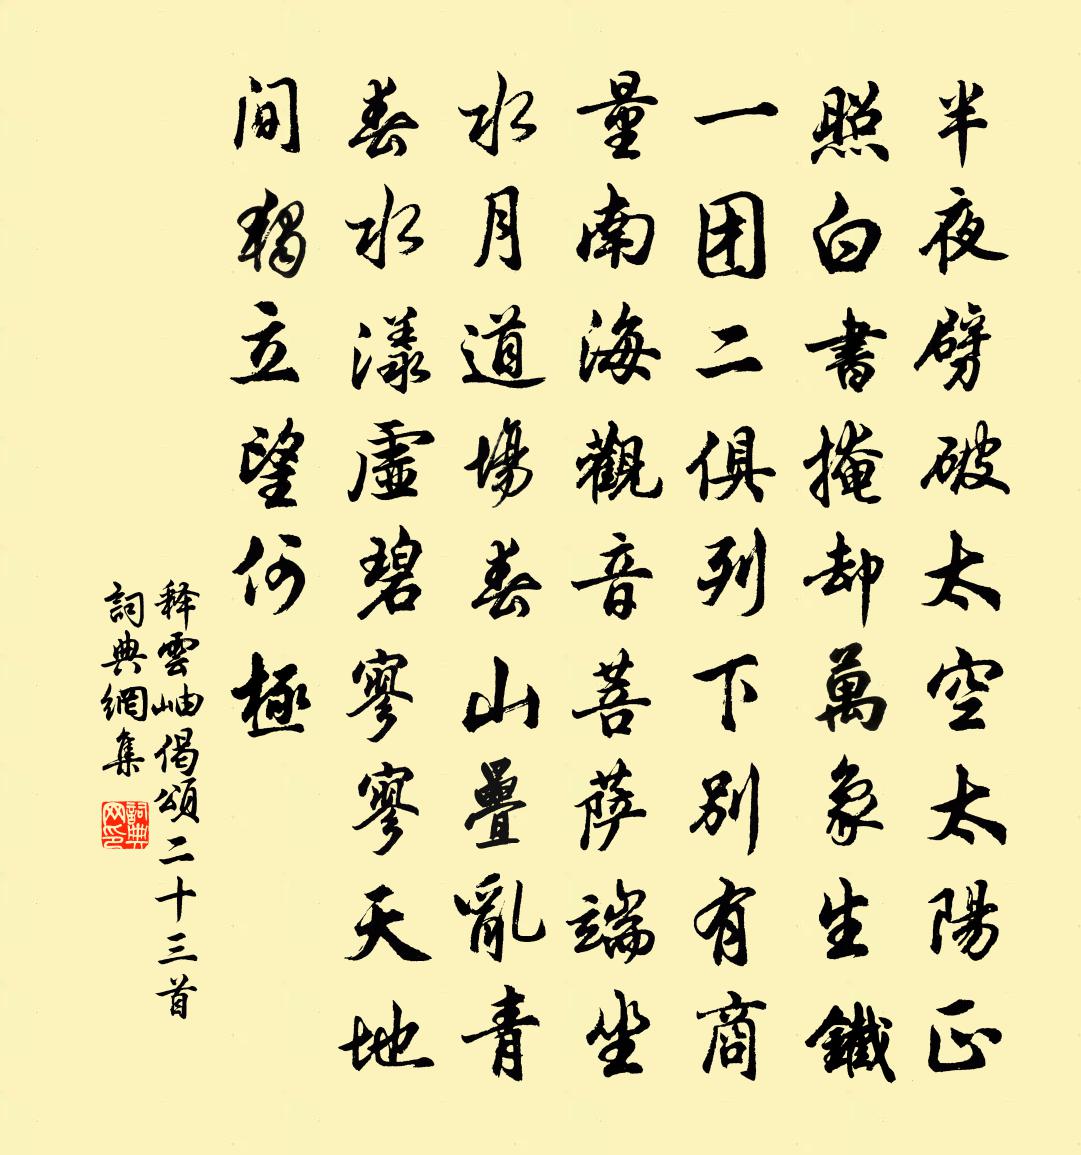 半夜劈破太空太陽正
照白書掩却萬象生鐵
一团二俱列下別有商
量南海觀音菩萨端坐
水月道場春山疊亂青
春水漾虛碧寥寥天地
間獨立望何極
释雲岫偈頌二十三首
詞典網集
詞典网印